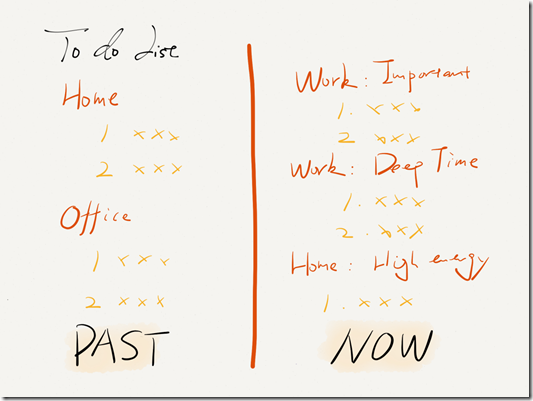 To do list
Home
1 xxx
2 xxx
Office
1 xxx
2 xxx
PAST
Work: Important
1. xxx
2 xxx
Work: Deep Time
1. xxx
2. xxx
Home: High energy
1. xxx
NOW